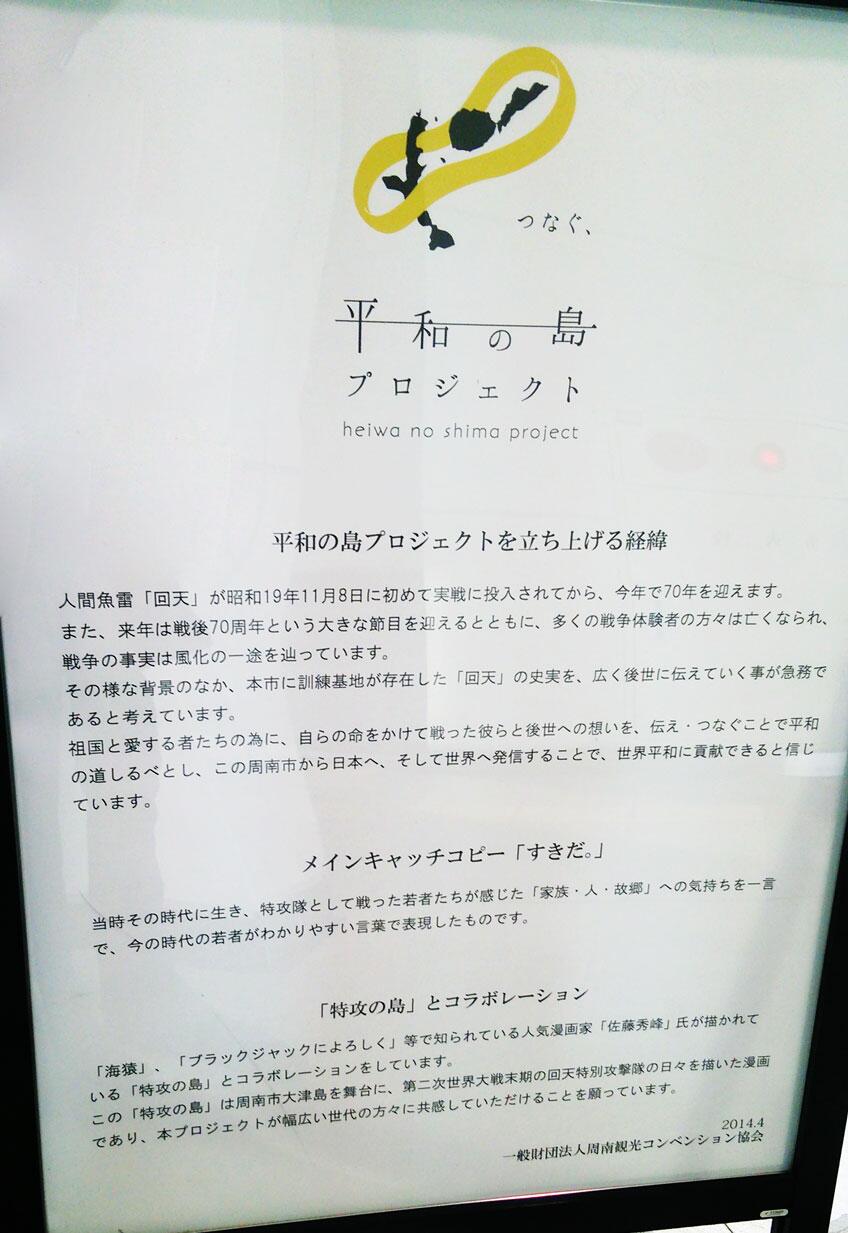 つなぐ、
平和の島
プロジェクト
heiwa no shima project
平和の島プロジェクトを立ち上げる経緯
人間魚雷「回天」が昭和19年11月8日に初めて実戦に投入されてから、今年で70年を迎えます。
また、来年は戦後70周年という大きな節目を迎えるとともに、多くの戦争体験者の方々は亡くなられ、
戦争の事実は風化の一途を辿っています。
その様な背景のなか、本市に訓練基地が存在した「回天」の史実を、広く後世に伝えていく事が急務で
あると考えています。
祖国と愛する者たちの為に、自らの命をかけて戦った彼らと後世への想いを、伝え・つなぐことで平和
の道しるべとし、この周南市から日本へ、そして世界へ発信することで、世界平和に貢献できると信じ
ています。
メインキャッチコピー「すきだ。」
当時その時代に生き、特攻隊として戦った若者たちが感じた「家族・人・故郷」への気持ちを一言
で、今の時代の若者がわかりやすい言葉で表現したものです。
「特攻の島」とコラボレーション
「海猿」、「ブラックジャックによろしく」等で知られている人気漫画家「佐藤秀峰」氏が描かれて
いる「特攻の島」とコラボレーションをしています。
この「特攻の島」は周南市大津島を舞台に、第二次世界大戦末期の回天特別攻撃隊の日々を描いた漫画
であり、本プロジェクトが幅広い世代の方々に共感していただけることを願っています。
2014.4
一般財団法人周南観光コンベンション協会